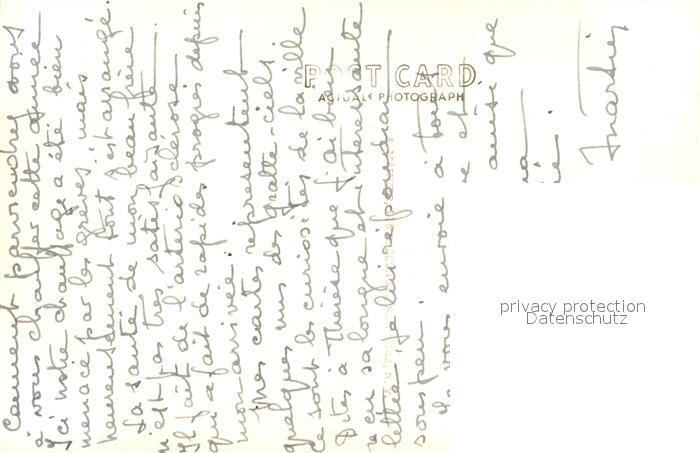 Comment parviendrez vous
à vous chauffer cette année
Ici notre chauffage a été bien
menacé par les grèves; mais
heureusement tout s'est arrangé.
La santé de mon beau frère
n'est pas très satisfaisante.
Il fait de l'artériosclérose
qui a fait de rapides progrès depuis
mon arrivée.
Mes cartes représentent
quelques uns des gratte-ciels.
Ce sont les curiosités de la ville
Dites à Thérèse que j'ai bien
reçu sa longue et intéressante
lettre. Je lui répondrai
sous peu.
Je vous envoie à tou
et
amitié que
POST CARD
ACTUAL PHOTOGRAPH
privacy protection
Datenschutz